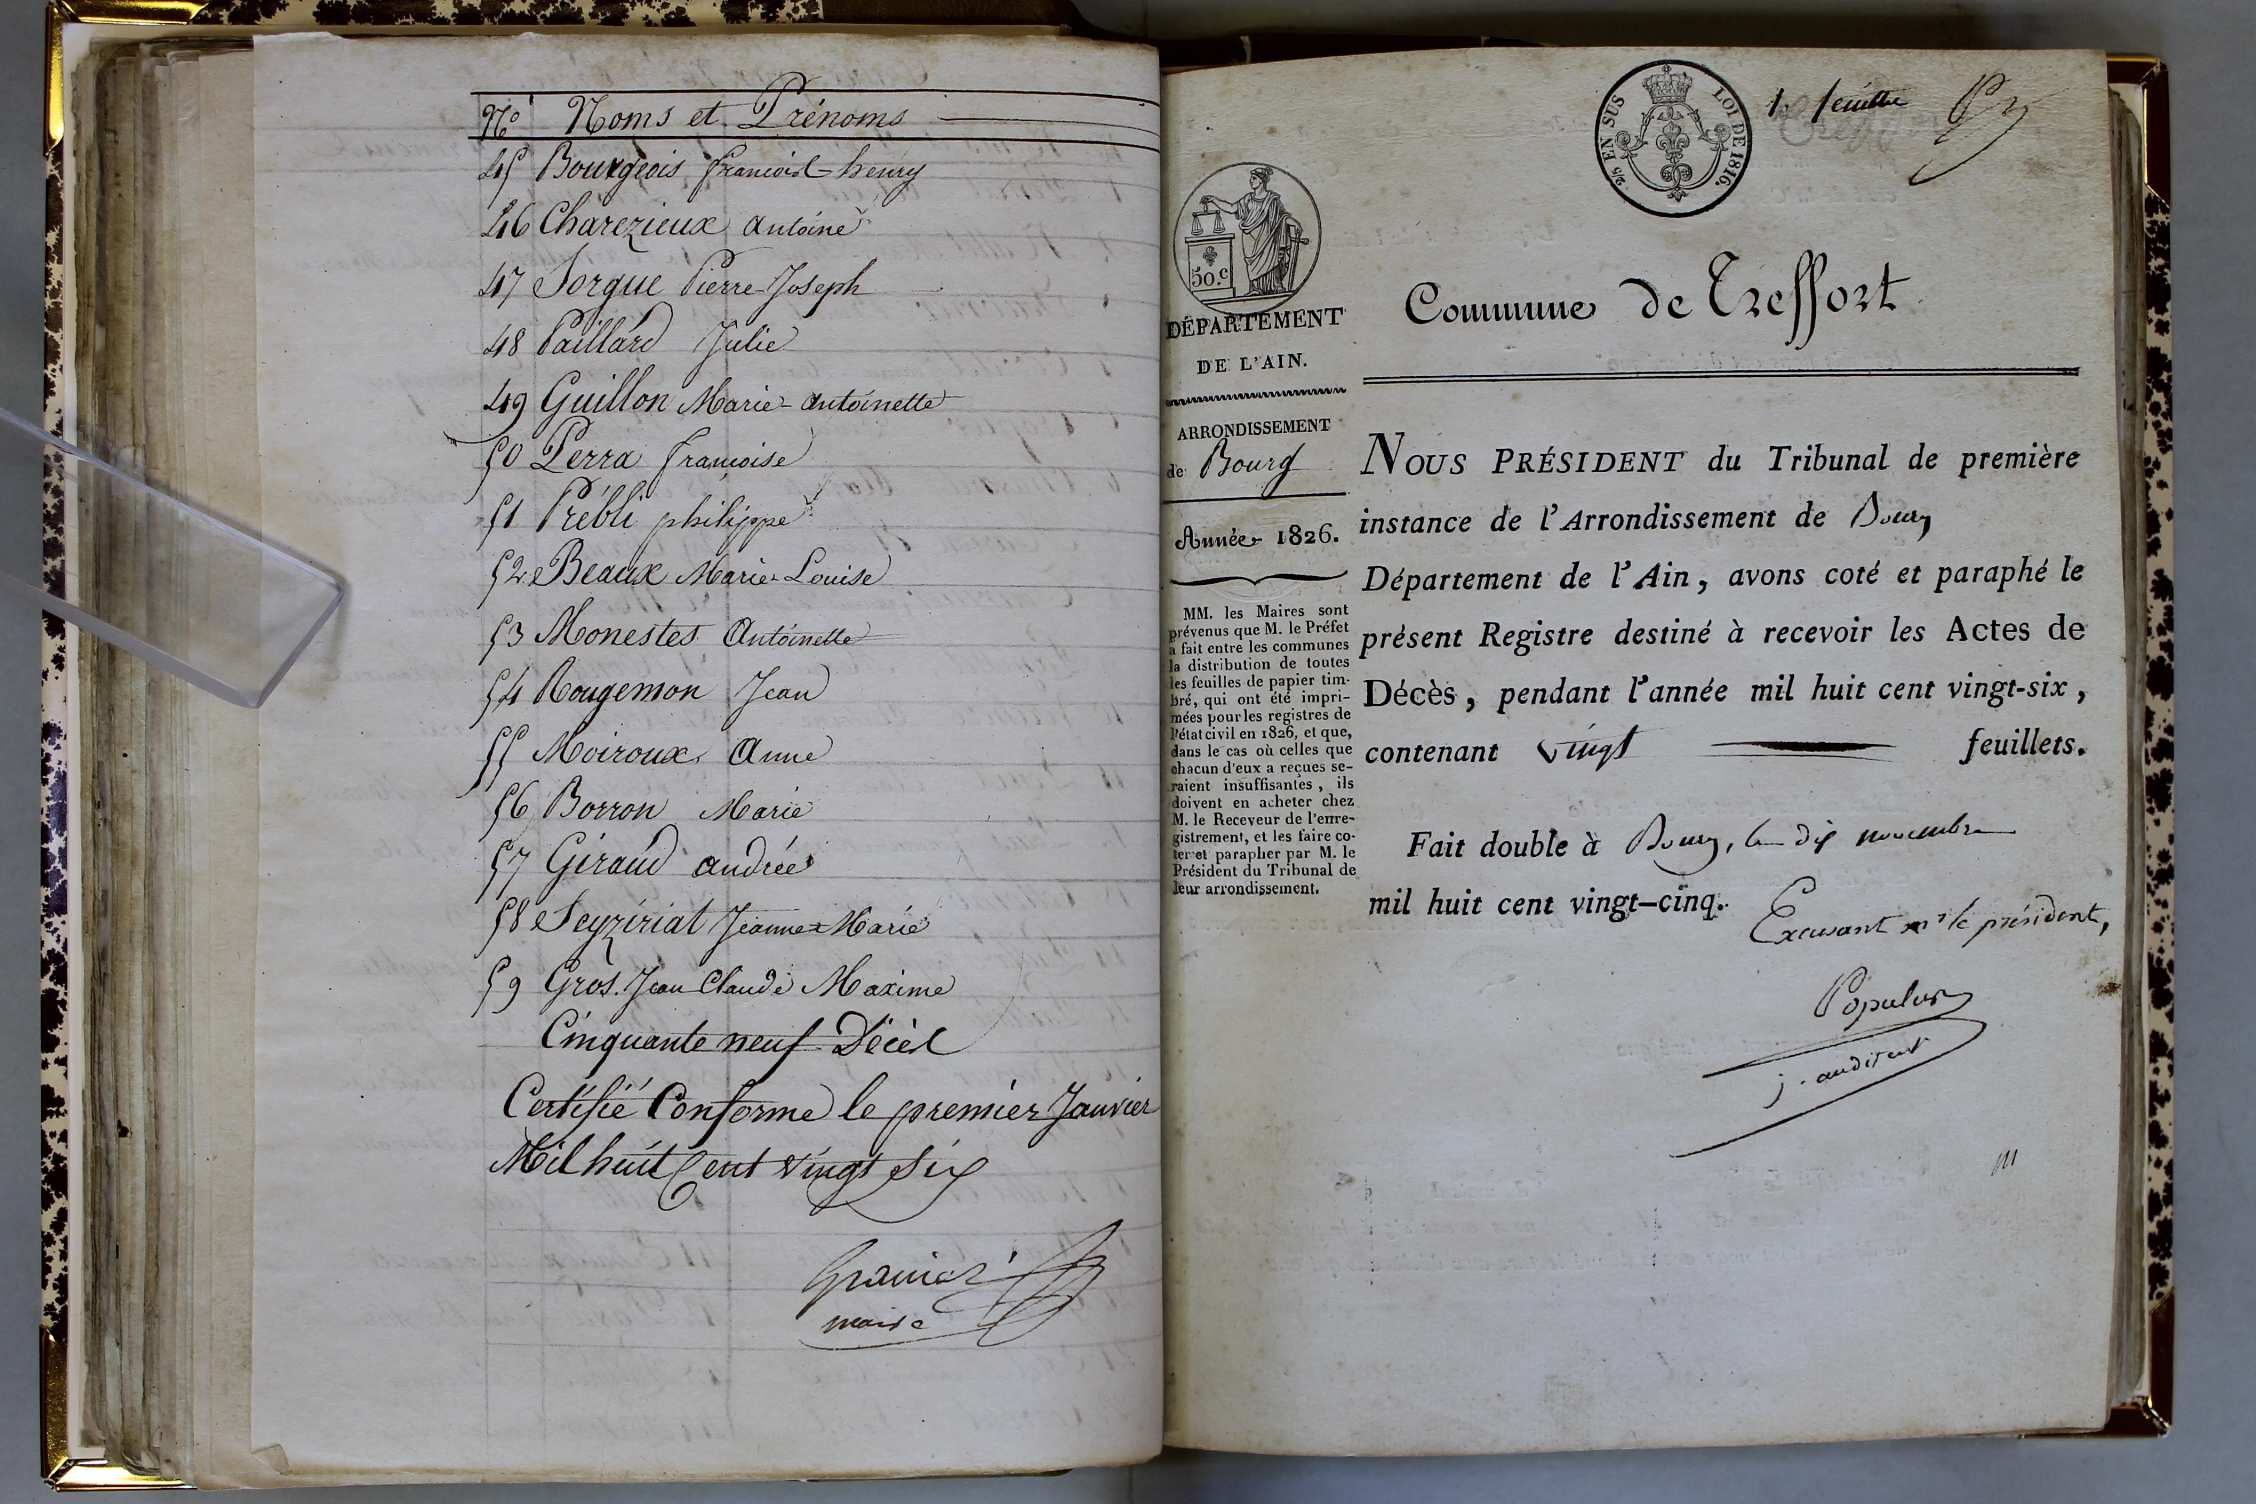 No Noms et Prénoms
45 Bourgeois francois-henry
46 Charezieux antoine
47 Sorgue Pierre-Joseph
48 Paillard Julie
49 Guillon Marie-antoinette
50 Perra francoise
51 Prébli philippe
52 Beaux Marie-Louise
53 Monestes Antoinette
54 Rougemon Jean
55 Moiroux Anne
56 Borron Marie
57 Giraud andrée
58 Seyziriat Jeanne-Marie
59 Gros Jean Claude Maxime
Cinquante neuf Décès
Certifié Conforme le premier Janvier
Mil huit Cent vingt Six
maire
2/5 EN SUS LOI DE 1816.
1. feuillet
50.c
DÉPARTEMENT
DE L'AIN.
ARRONDISSEMENT
de Bourg
Année 1826.
MM. les Maires sont
prévenus que M. le Préfet
a fait entre les communes
la distribution de toutes
les feuilles de papier tim-
bré, qui ont été impri-
mées pour les registres de
l'état civil en 1826, et que,
dans le cas où celles que
chacun d'eux a reçues se-
raient insuffisantes, ils
doivent en acheter chez
M. le Receveur de l'enre-
gistrement, et les faire co-
ter et parapher par M. le
Président du Tribunal de
leur arrondissement.
Commune de Treffort
NOUS PRÉSIDENT du Tribunal de première
instance de l'Arrondissement de Bourg
Département de l'Ain, avons coté et paraphé le
présent Registre destiné à recevoir les Actes de
Décès, pendant l'année mil huit cent vingt-six,
contenant vingt feuillets.
Fait double à Bourg, le dix novembre
mil huit cent vingt-cinq.
Excusant mr le président,
Populus
j. auditeur